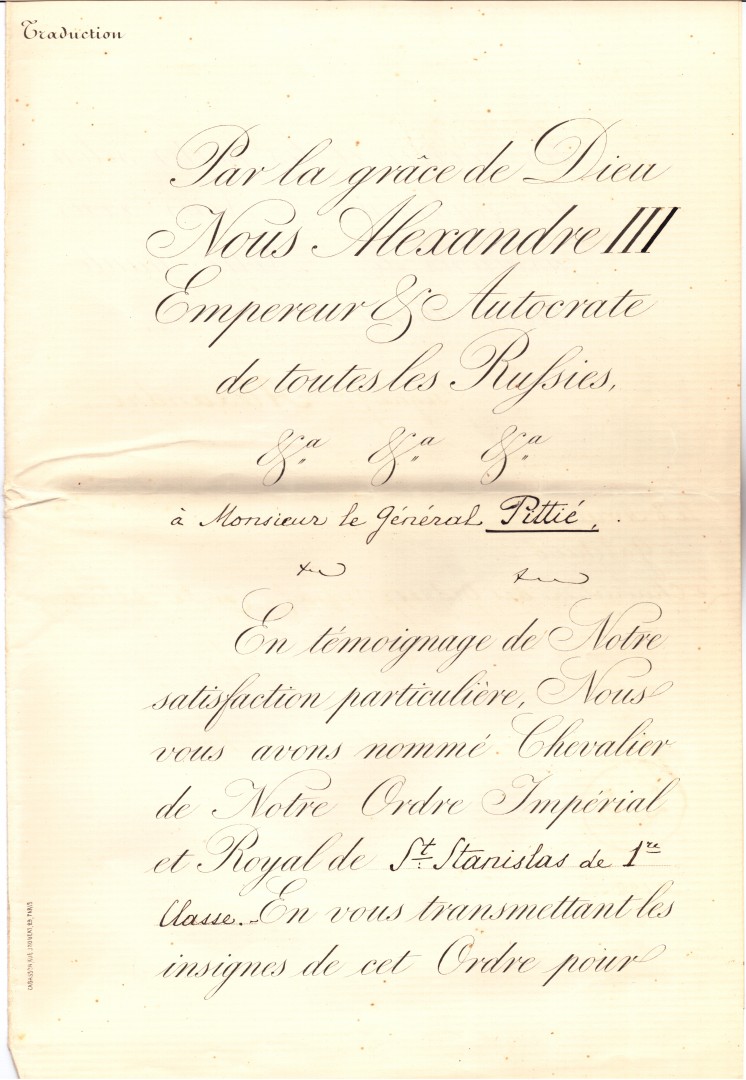 Traduction
Par la grâce de Dieu
Nous Alexandre III
Empereur & Autocrate
de toutes les Russies,
&a &a &a
à Monsieur le Général Pittié,
En témoignage de Notre
satisfaction particulière, Nous
vous avons nommé Chevalier
de Notre Ordre Impérial
et Royal de St. Stanislas de 1re
Classe.- En vous transmettant les
insignes de cet Ordre pour